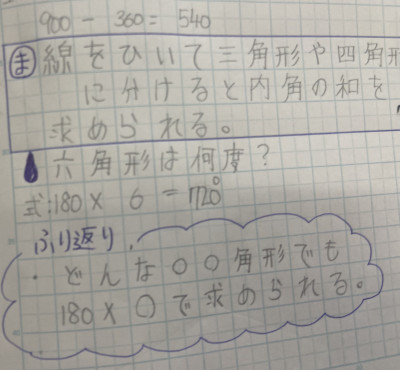 900 - 360 = 540
ま 線をひいて三角形や四角形
に分けると内角の和を
求められる。
六角形は何度?
式:180 × 6 = 720°
ふり返り
・どんな〇〇角形でも
180×〇で求められる。